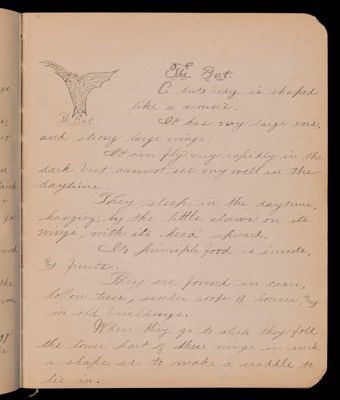 The Bat.
A bat's body is shaped
like a mouse's.
The Bat.
It has very large ears,
and strong large wings.
It can fly very rapidly in the
dark but cannot see very well in the
daytime.
They sleep in the daytime,
hanging by the little claws on its
wings, with its head
Its principle food is insects,
& fruits.
They are found in caves,
hollow trees, under roofs of houses, &
in old buildings.
When they go to sleep they fold
the lower part of their wings in such
a shape as to make a craddle to
lie in.